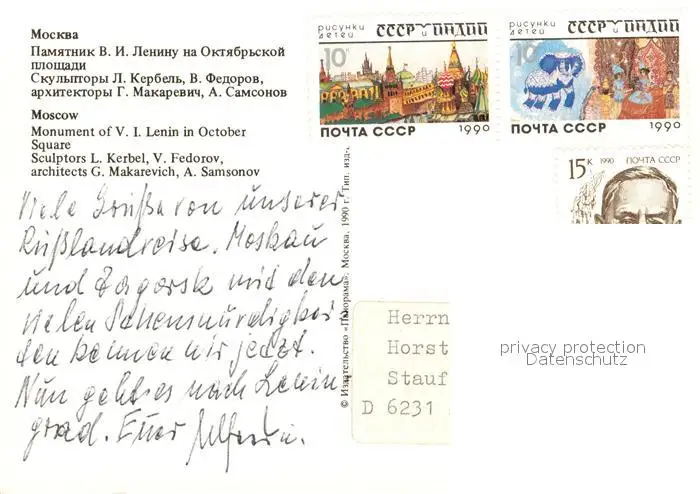 Москва
Памятник В. И. Ленину на Октябрьской
площади
Скульпторы Л. Кербель, В. Федоров,
архитекторы Г. Макаревич, А. Самсонов
Moscow
Monument of V. I. Lenin in October
Square
Sculptors L. Kerbel, V. Fedorov,
architects G. Makarevich, A. Samsonov
Viele Grüße von unserer
Rußlandreise. Moskau
und Zagorsk mit den
vielen Sehenswürdigkei-
ten kennen wir jetzt.
Nun geht es nach Lenin-
grad. Euer
© Издательство «Панорама», Москва, 1990 г. Тип. изд-
рисунки детей
СССР и ИНДИЙ
10к
ПОЧТА СССР 1990
рисунки детей
СССР и ИНДИЙ
10
ПОЧТА СССР 1990
15 к 1990 ПОЧТА СССР
Herrn
Horst
Stauf
D 6231
privacy protection
Datenschutz